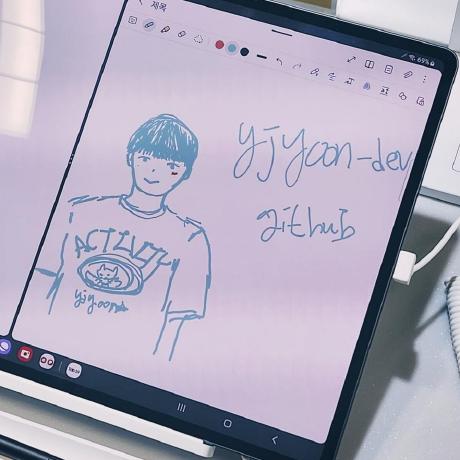 제목
69%
yjyoon-dev
github
ACTIVITY
yjyoon